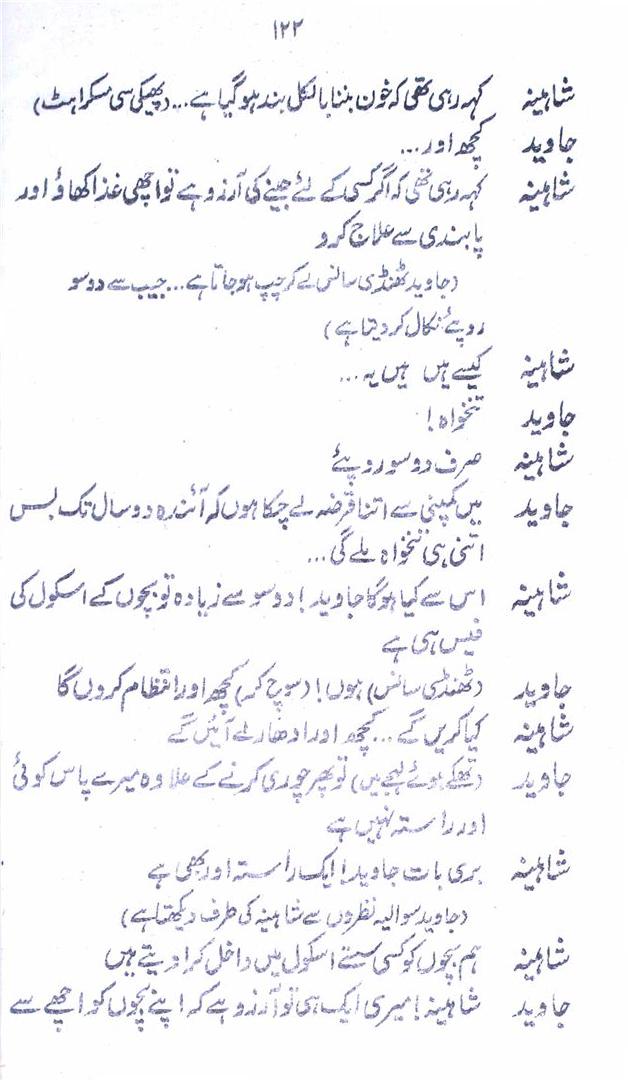 ۱۲۲
شاہینہ کہہ رہی تھی کہ خون بننا بالکل بند ہو گیا ہے... (پھیکی سی مسکراہٹ)
جاوید کچھ اور...
شاہینہ کہہ رہی تھی کہ اگر کسی کے لئے جینے کی آرزو ہے تو اچھی غذا کھاؤ اور
پابندی سے علاج کرو
(جاوید ٹھنڈی سانس لے کر چپ ہو جاتا ہے... جیب سے دو سو
روپئے نکال کر دیتا ہے)
شاہینہ کیسے ہیں ہیں یہ...
جاوید تنخواہ!
شاہینہ صرف دو سو روپئے
جاوید میں کمپنی سے اتنا قرضہ لے چکا ہوں کہ آئندہ دو سال تک بس
اتنی ہی تنخواہ ملے گی...
شاہینہ اس سے کیا ہوگا جاوید! دو سو سے زیادہ تو بچوں کے اسکول کی
فیس ہی ہے
جاوید (ٹھنڈی سانس) ہوں! (سوچ کر) کچھ اور انتظام کروں گا
شاہینہ کیا کریں گے... کچھ اور ادھار لے آئیں گے
جاوید (تھکے ہوئے لہجے میں) تو پھر چوری کرنے کے علاوہ میرے پاس کوئی
اور راستہ نہیں ہے
شاہینہ بری بات جاوید! ایک راستہ اور بھی ہے
(جاوید سوالیہ نظروں سے شاہینہ کی طرف دیکھتا ہے)
شاہینہ ہم بچوں کو کسی سستے اسکول میں داخل کرا دیتے ہیں
جاوید شاہینہ! میری ایک ہی تو آرزو ہے کہ اپنے بچوں کو اچھے سے